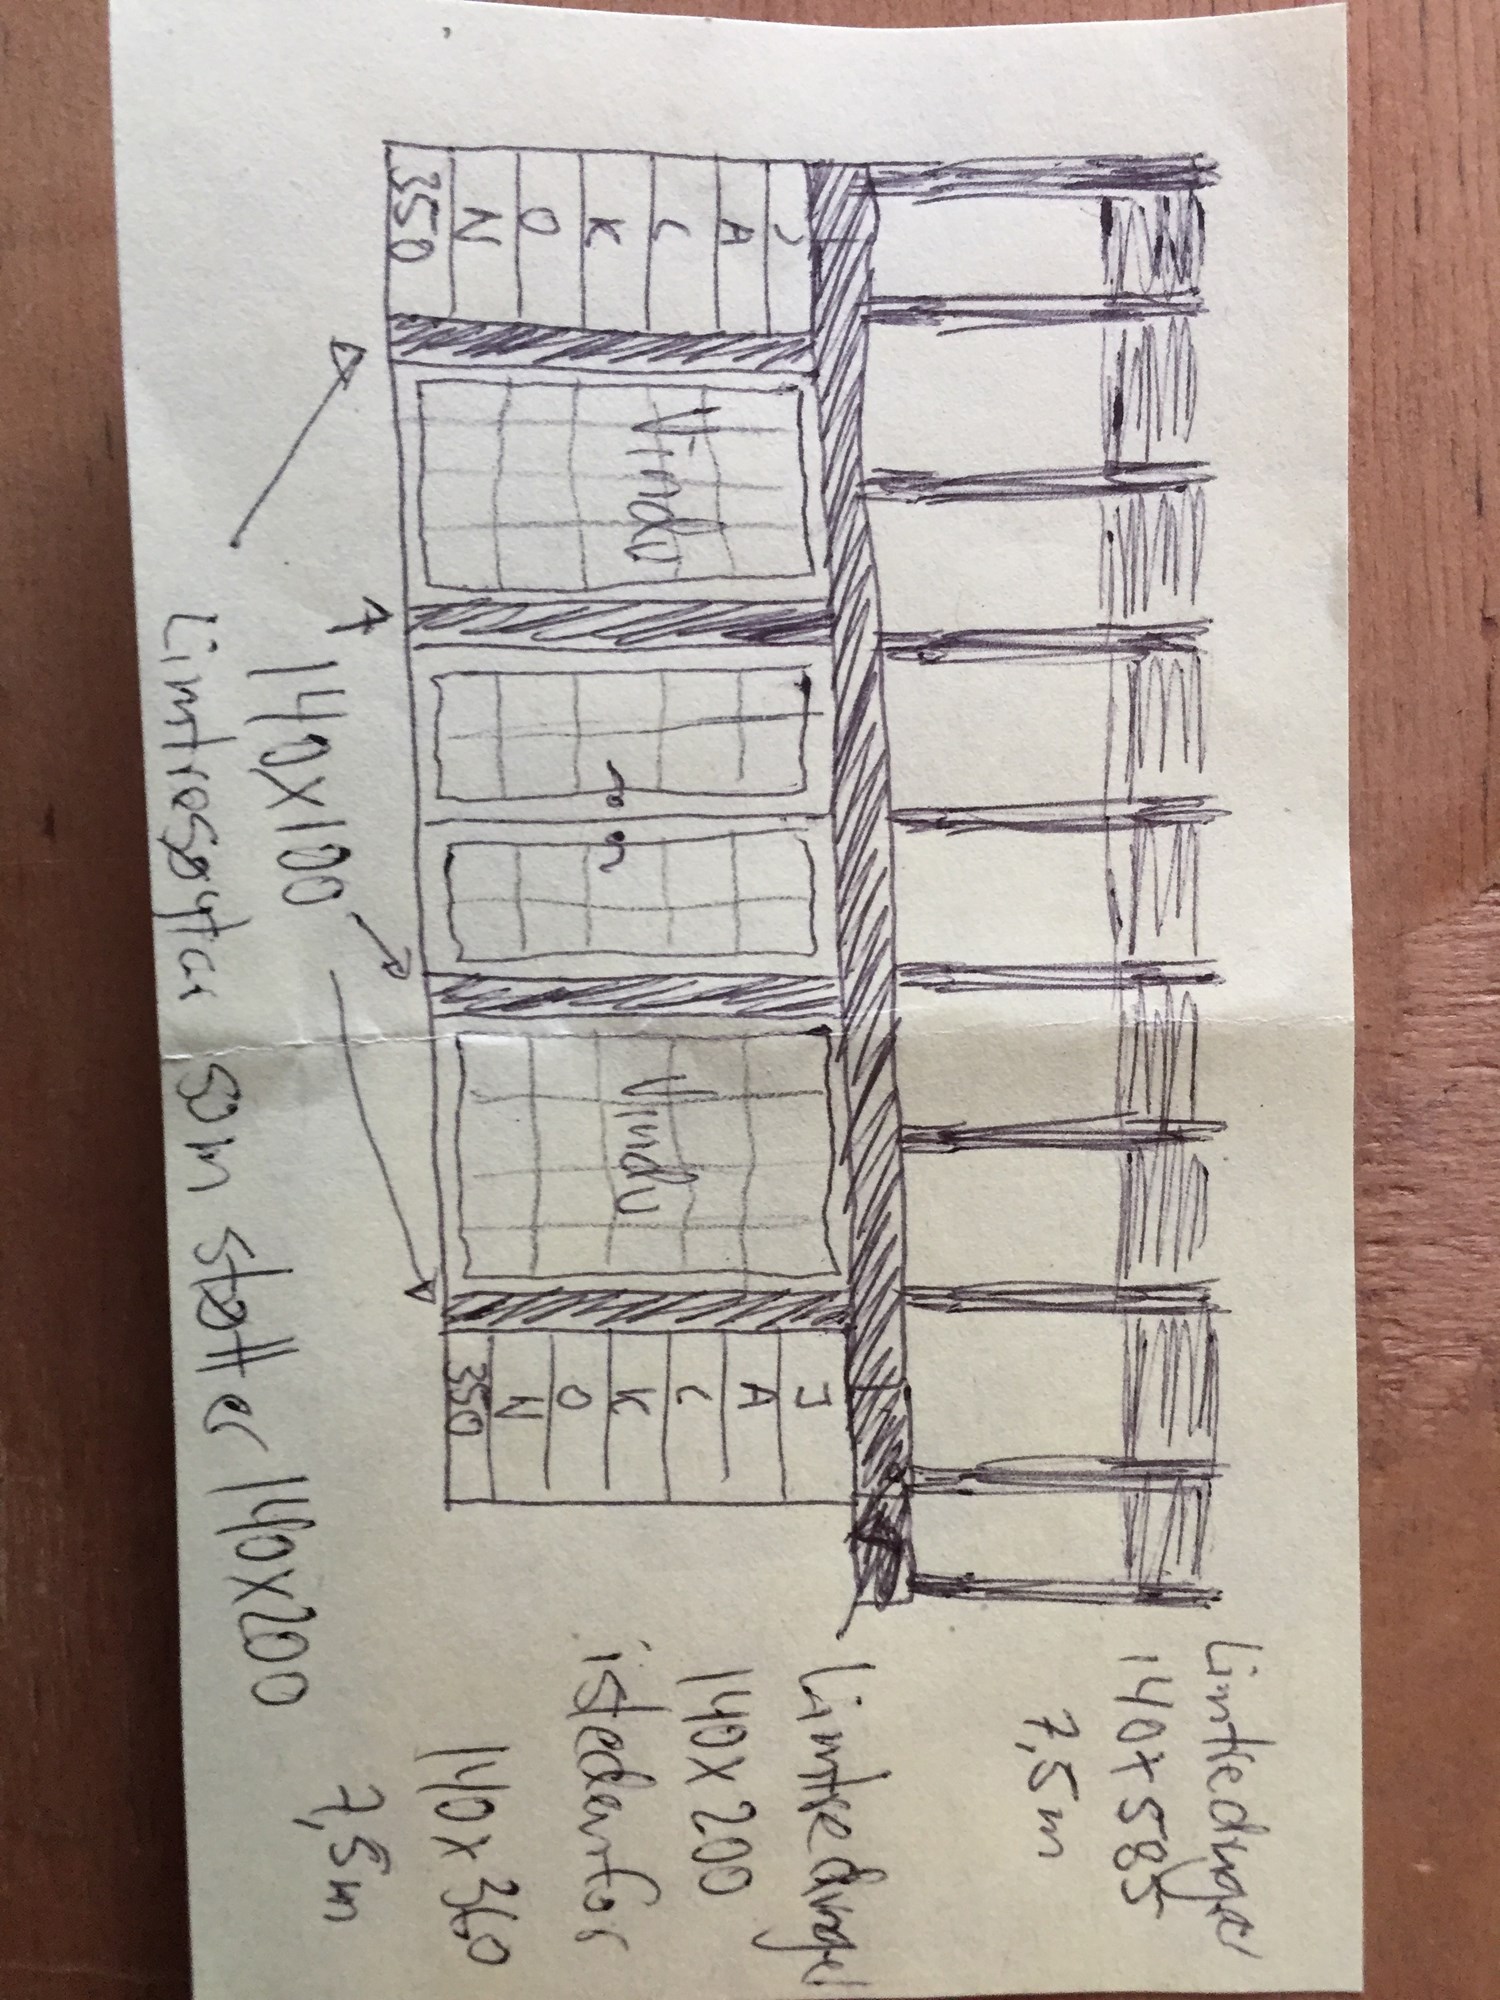 Limtredrager
140x585
7,5m
Limtredragel
140x200
istedenfor
140x360
7,5m
J
A
L
K
O
N
350
Vindu
Vindu
J
A
L
K
O
N
350
140x100
Limtresøyler som støtter 140x200